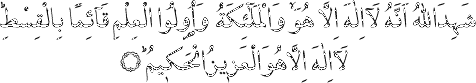 شَهِدَ اللهُ أَنَّهُ لَآ إِلَهَ إِلَّا هُوَ وَالْمَلَٰٓئِكَةُ وَأُولُوا الْعِلْمِ قَآئِمًا بِالْقِسْطِ ۚ
لَآ إِلَهَ إِلَّا هُوَ الْعَزِيزُ الْحَكِيمُ ۝